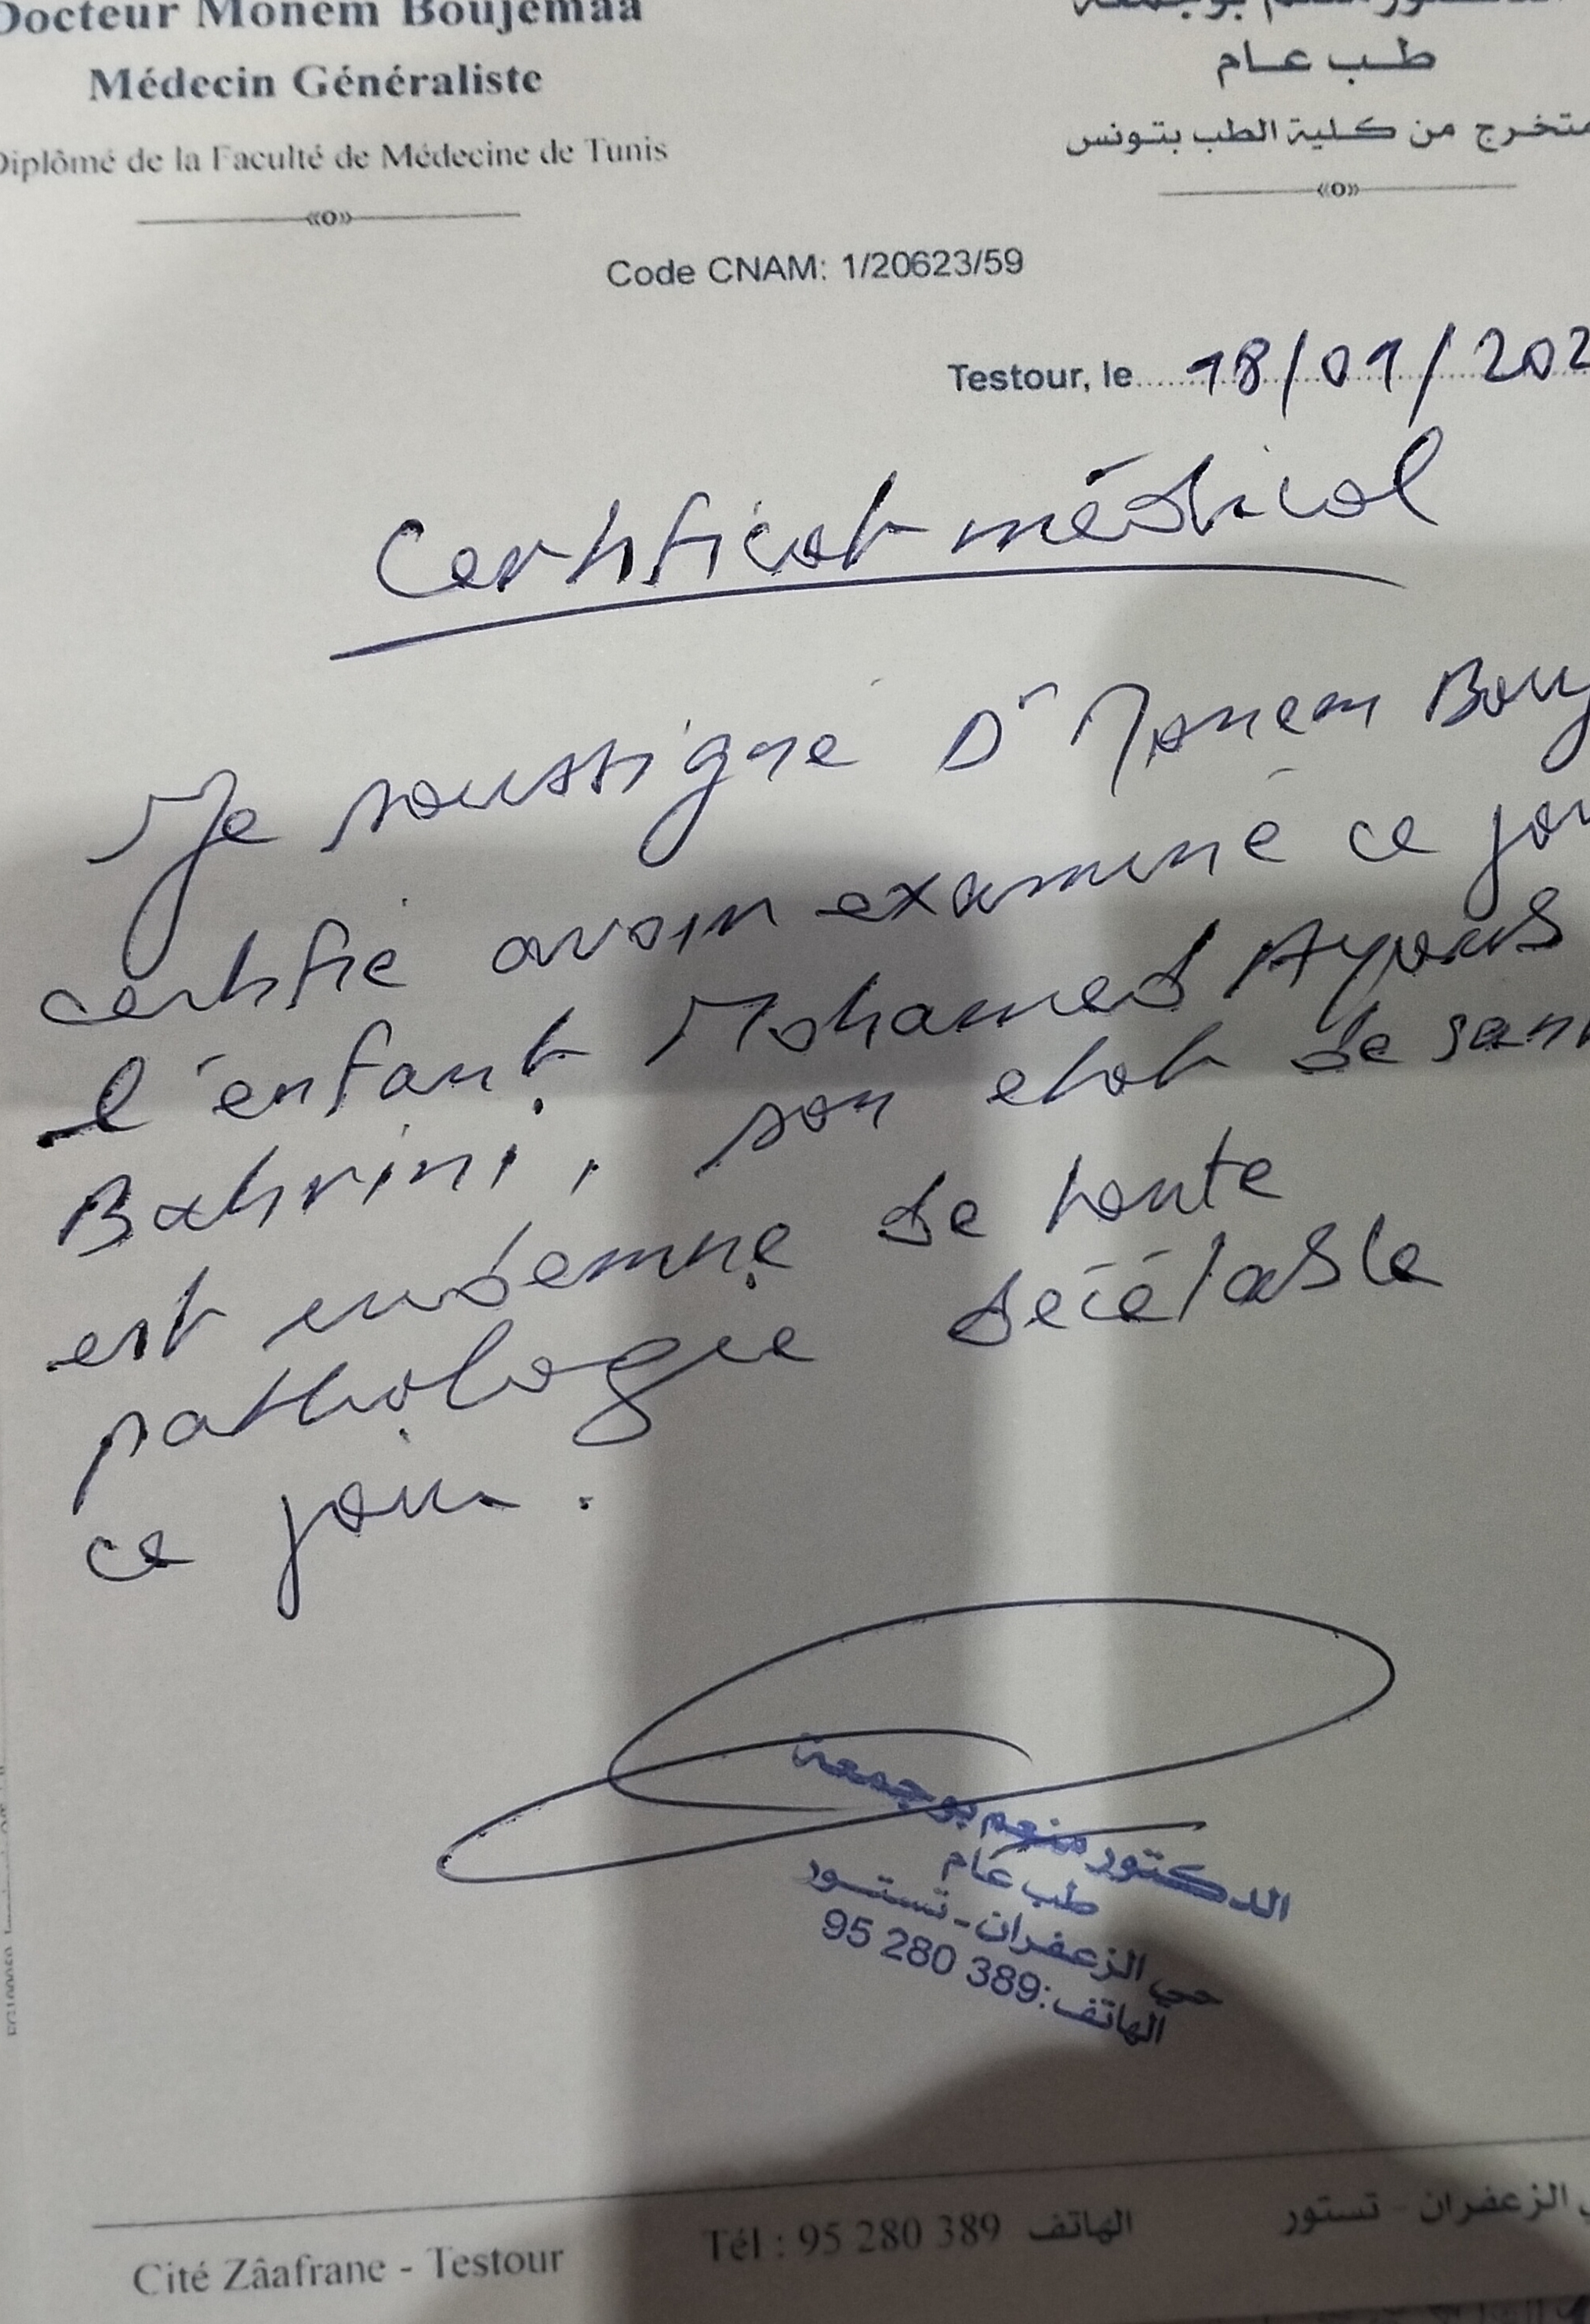 Docteur Monem Boujemaa
Médecin Généraliste
Diplômé de la Faculté de Médecine de Tunis
«o»
طب عام
متخرج من كلية الطب بتونس
«o»
Code CNAM: 1/20623/59
Testour, le 18/01/202
Certificat médical
Je soussigné Dr Monem Bouj
certifie avoir examiné ce jour
l'enfant Mohamed Ayoub
Bahrini, son etat de sant
est indemne de toute
pathologie décélable
ce jour.
الدكتور منعم بوجمعة
طب عام
حي الزعفران - تستور
الهاتف: 95 280 389
Cité Zâafrane - Testour
Tél : 95 280 389 الهاتف
الزعفران - تستور